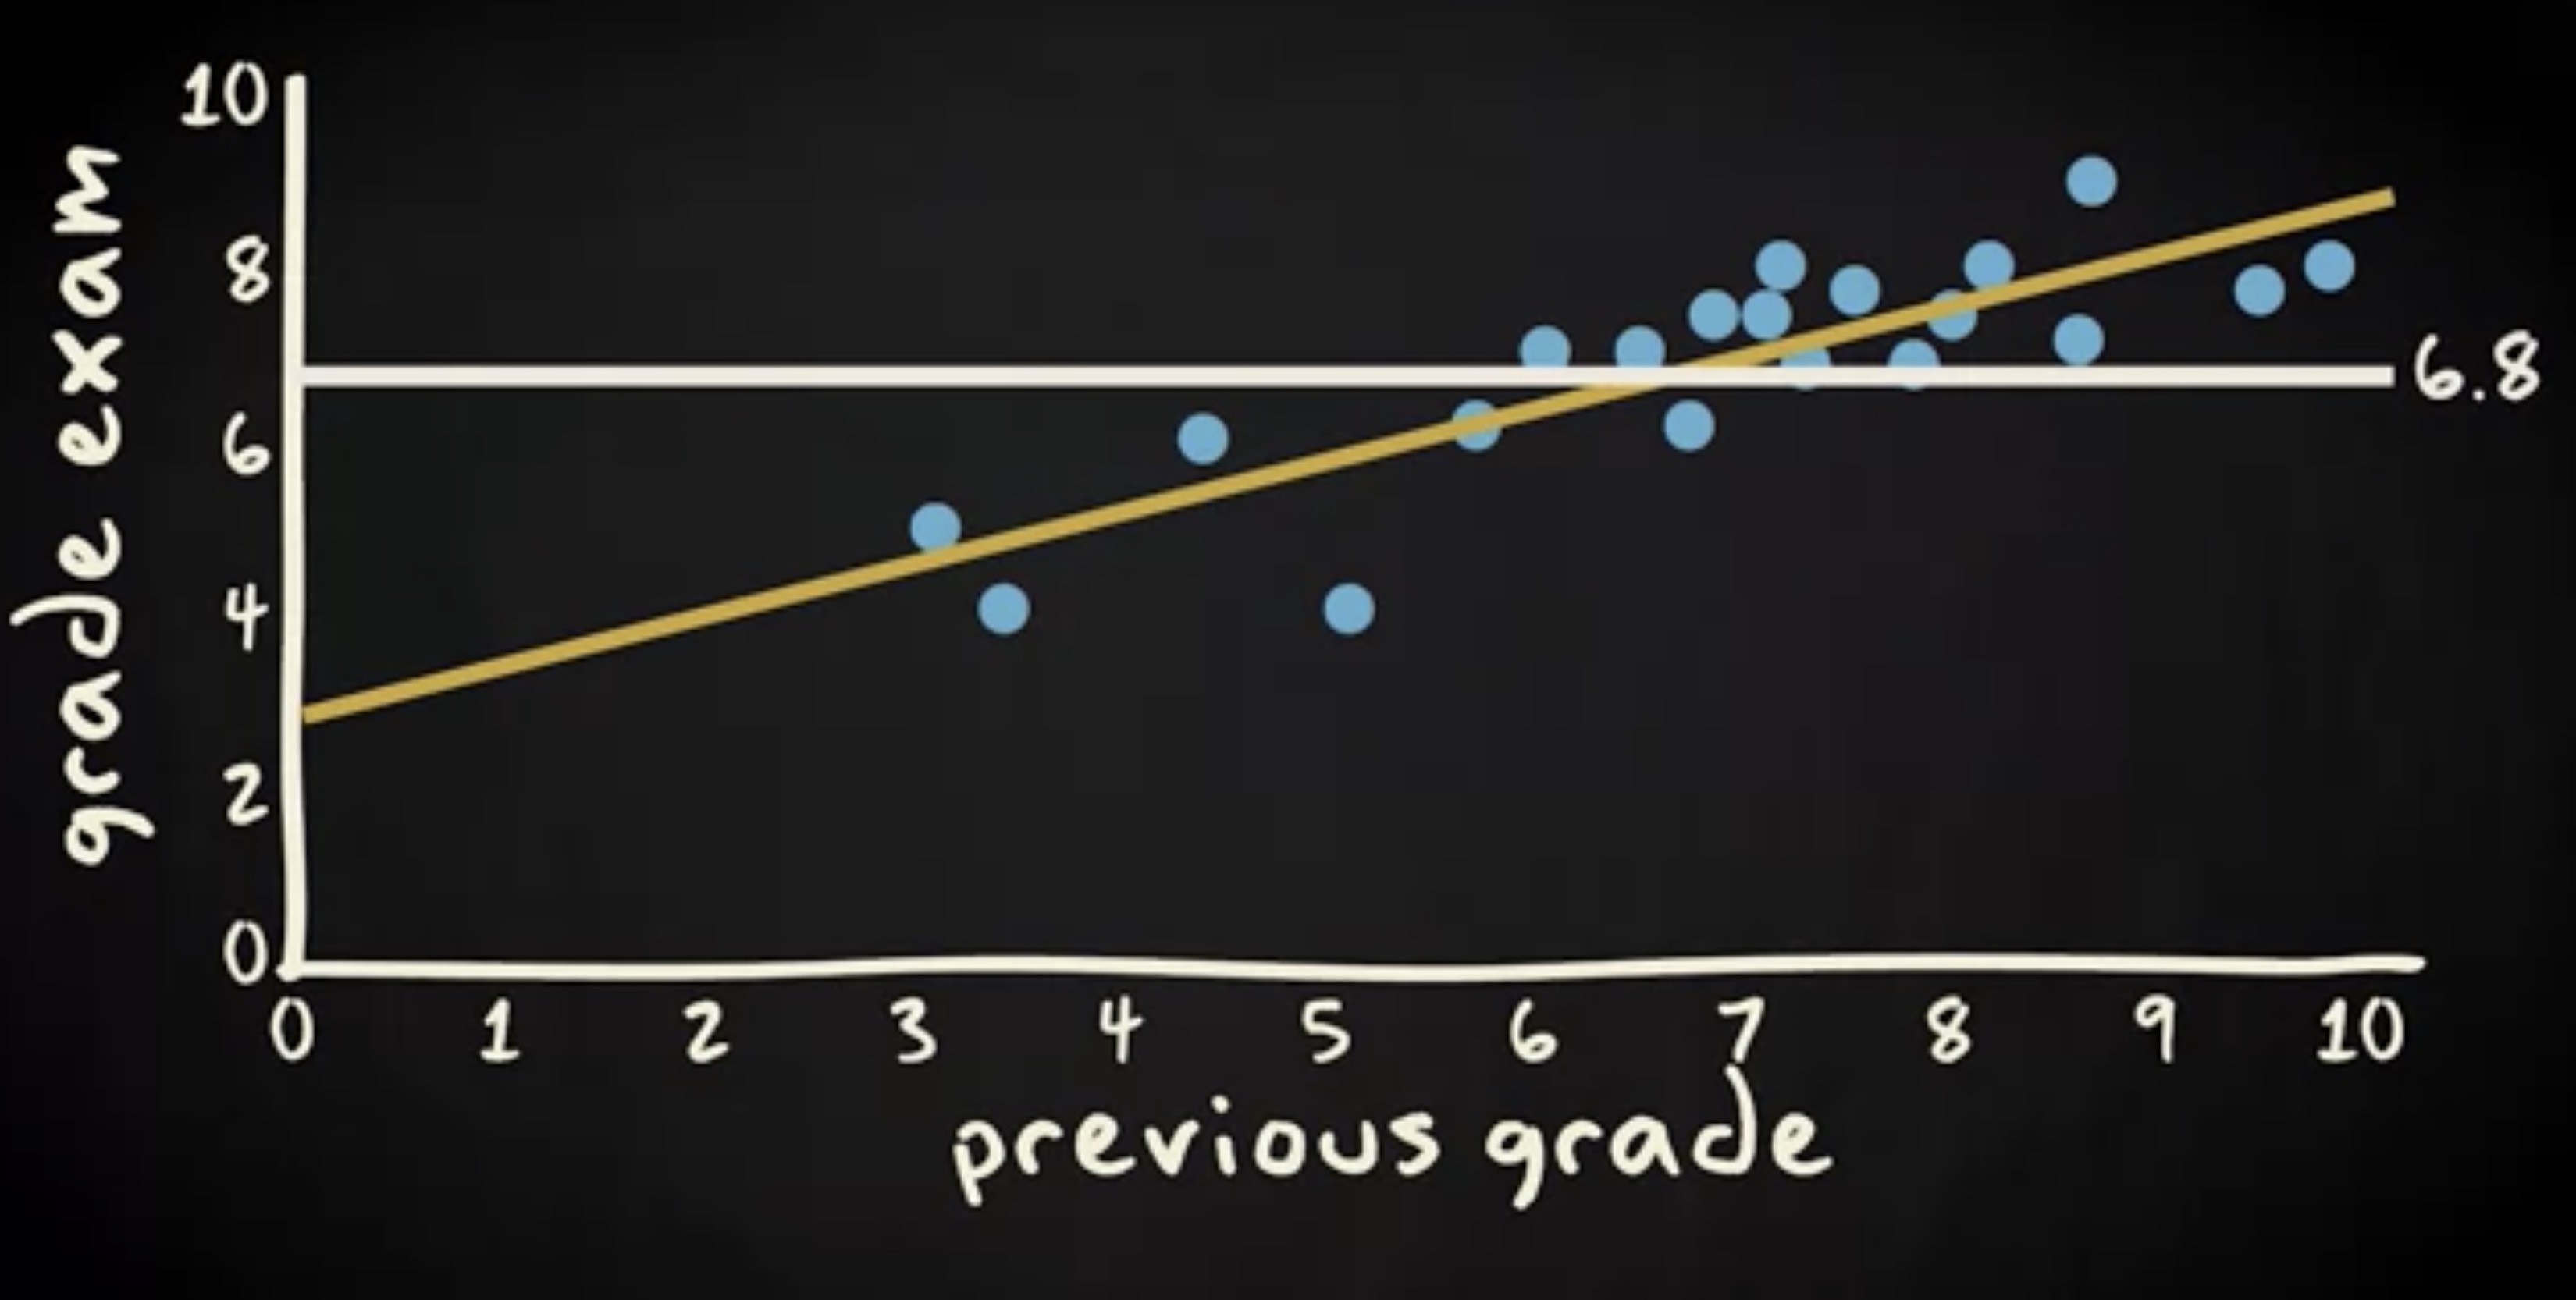 grade exam
10
8
6
4
2
0
6.8
0 1 2 3 4 5 6 7 8 9 10
previous grade